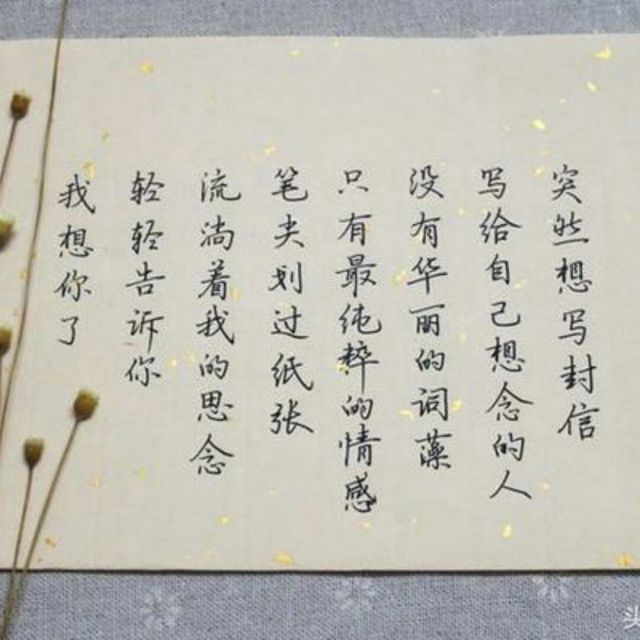 突然想写封信
写给自己想念的人
没有华丽的词藻
只有最纯粹的情感
笔尖划过纸张
流淌着我的思念
轻轻告诉你
我想你了
头